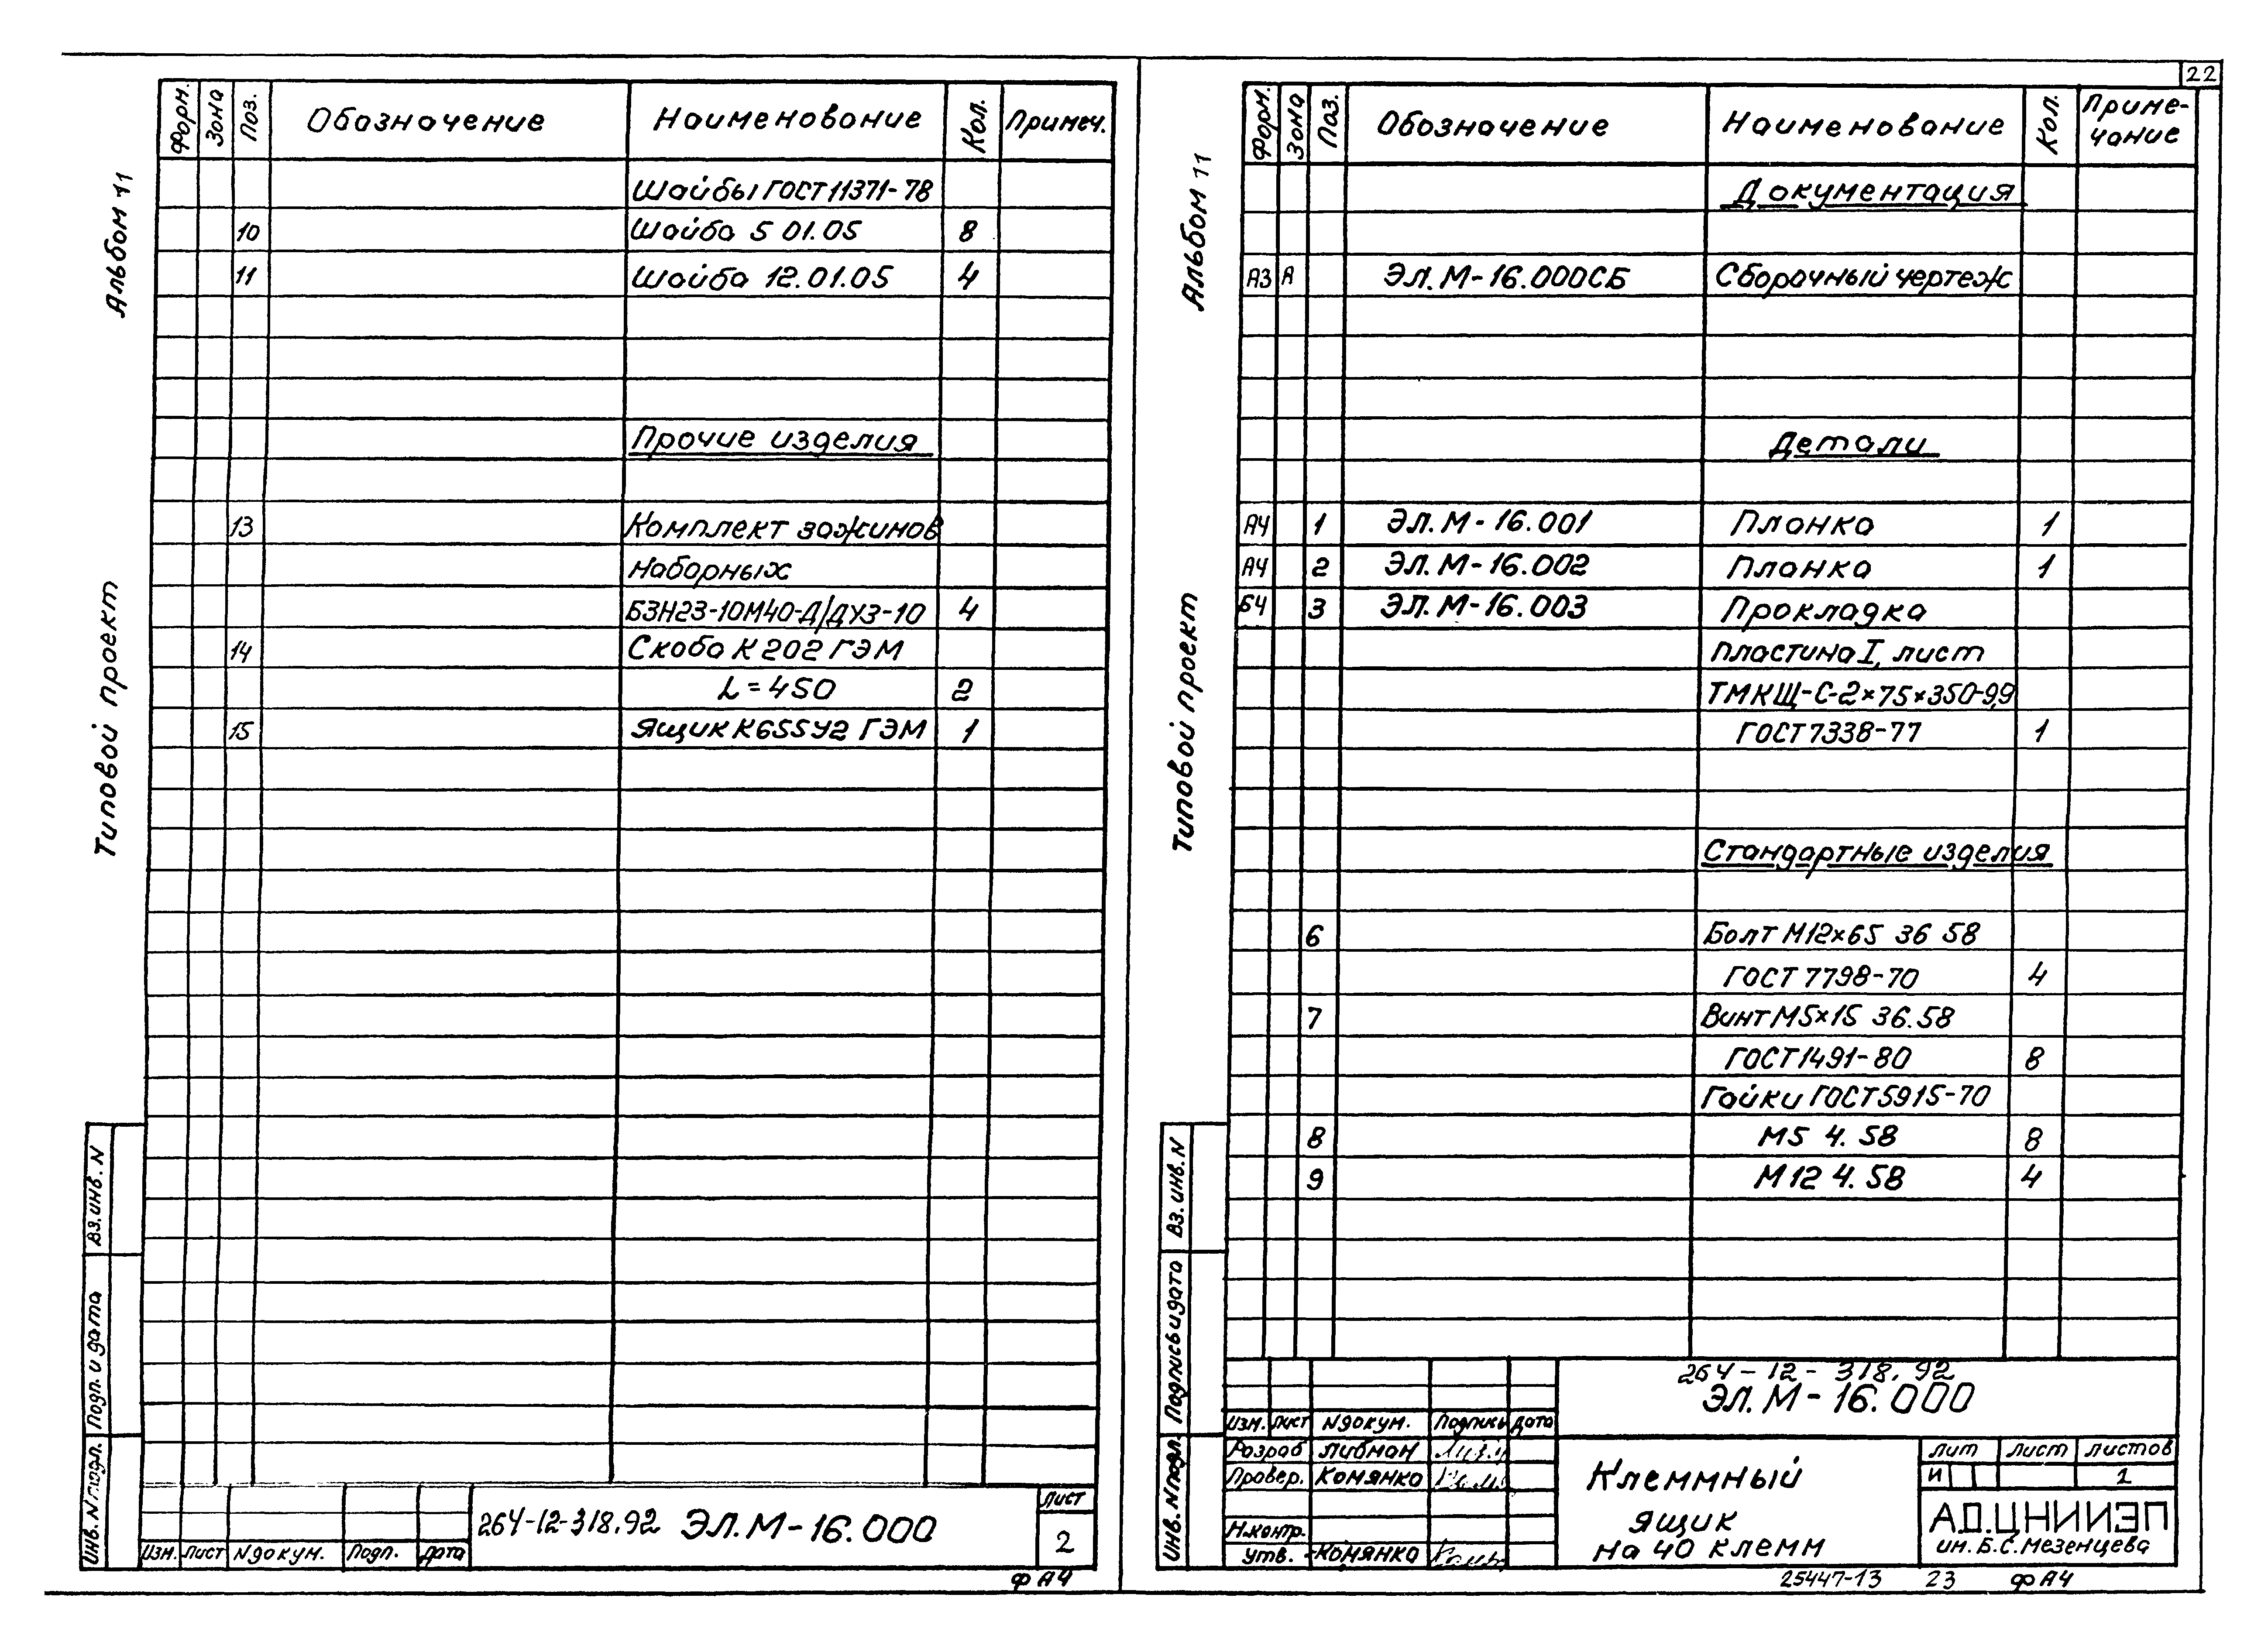 22
Альбом 11
Типовой проект
Форм. Зона Поз. Обозначение Наименование Кол. Примеч.
Шайбы ГОСТ 11371-78
10 Шайба 5 01.05 8
11 Шайба 12.01.05 4
Прочие изделия
13 Комплект зажимов
наборных
БЗН23-10М40-Д/ДУ3-10 4
14 Скоба К 202 ГЭМ
L = 450 2
15 Ящик К655У2 ГЭМ 1
Вз. инв. N
Подп. и дата
Инв. N подл.
Изм. Лист N докум. Подп. Дата
264-12-318.92 ЭЛ.М-16.000
Лист
2
Ф А4
Альбом 11
Типовой проект
Форм. Зона Поз. Обозначение Наименование Кол. Приме-
чание
Документация
А3 А ЭЛ.М-16.000СБ Сборочный чертеж
Детали
А4 1 ЭЛ.М-16.001 Планка 1
А4 2 ЭЛ.М-16.002 Планка 1
БЧ 3 ЭЛ.М-16.003 Прокладка
Пластина I, лист
ТМКЩ-С-2×75×350-9,9
ГОСТ 7338-77 1
Стандартные изделия
6 Болт М12×65 36 58
ГОСТ 7798-70 4
7 Винт М5×15 36.58
ГОСТ 1491-80 8
Гайки ГОСТ 5915-70
8 М5 4.58 8
9 М12 4.58 4
Вз. инв. N
Подпись и дата
Инв. N подл.
264-12-318.92
ЭЛ.М-16.000
Изм. Лист N докум. Подпись Дата
Разраб Либман
Провер. Комянко
Н.контр.
Утв. Комянко
Клеммный
ящик
на 40 клемм
Лит Лист Листов
И 1
АО.ЦНИИЭП
им. Б.С. Мезенцева
25447-13 23 Ф А4